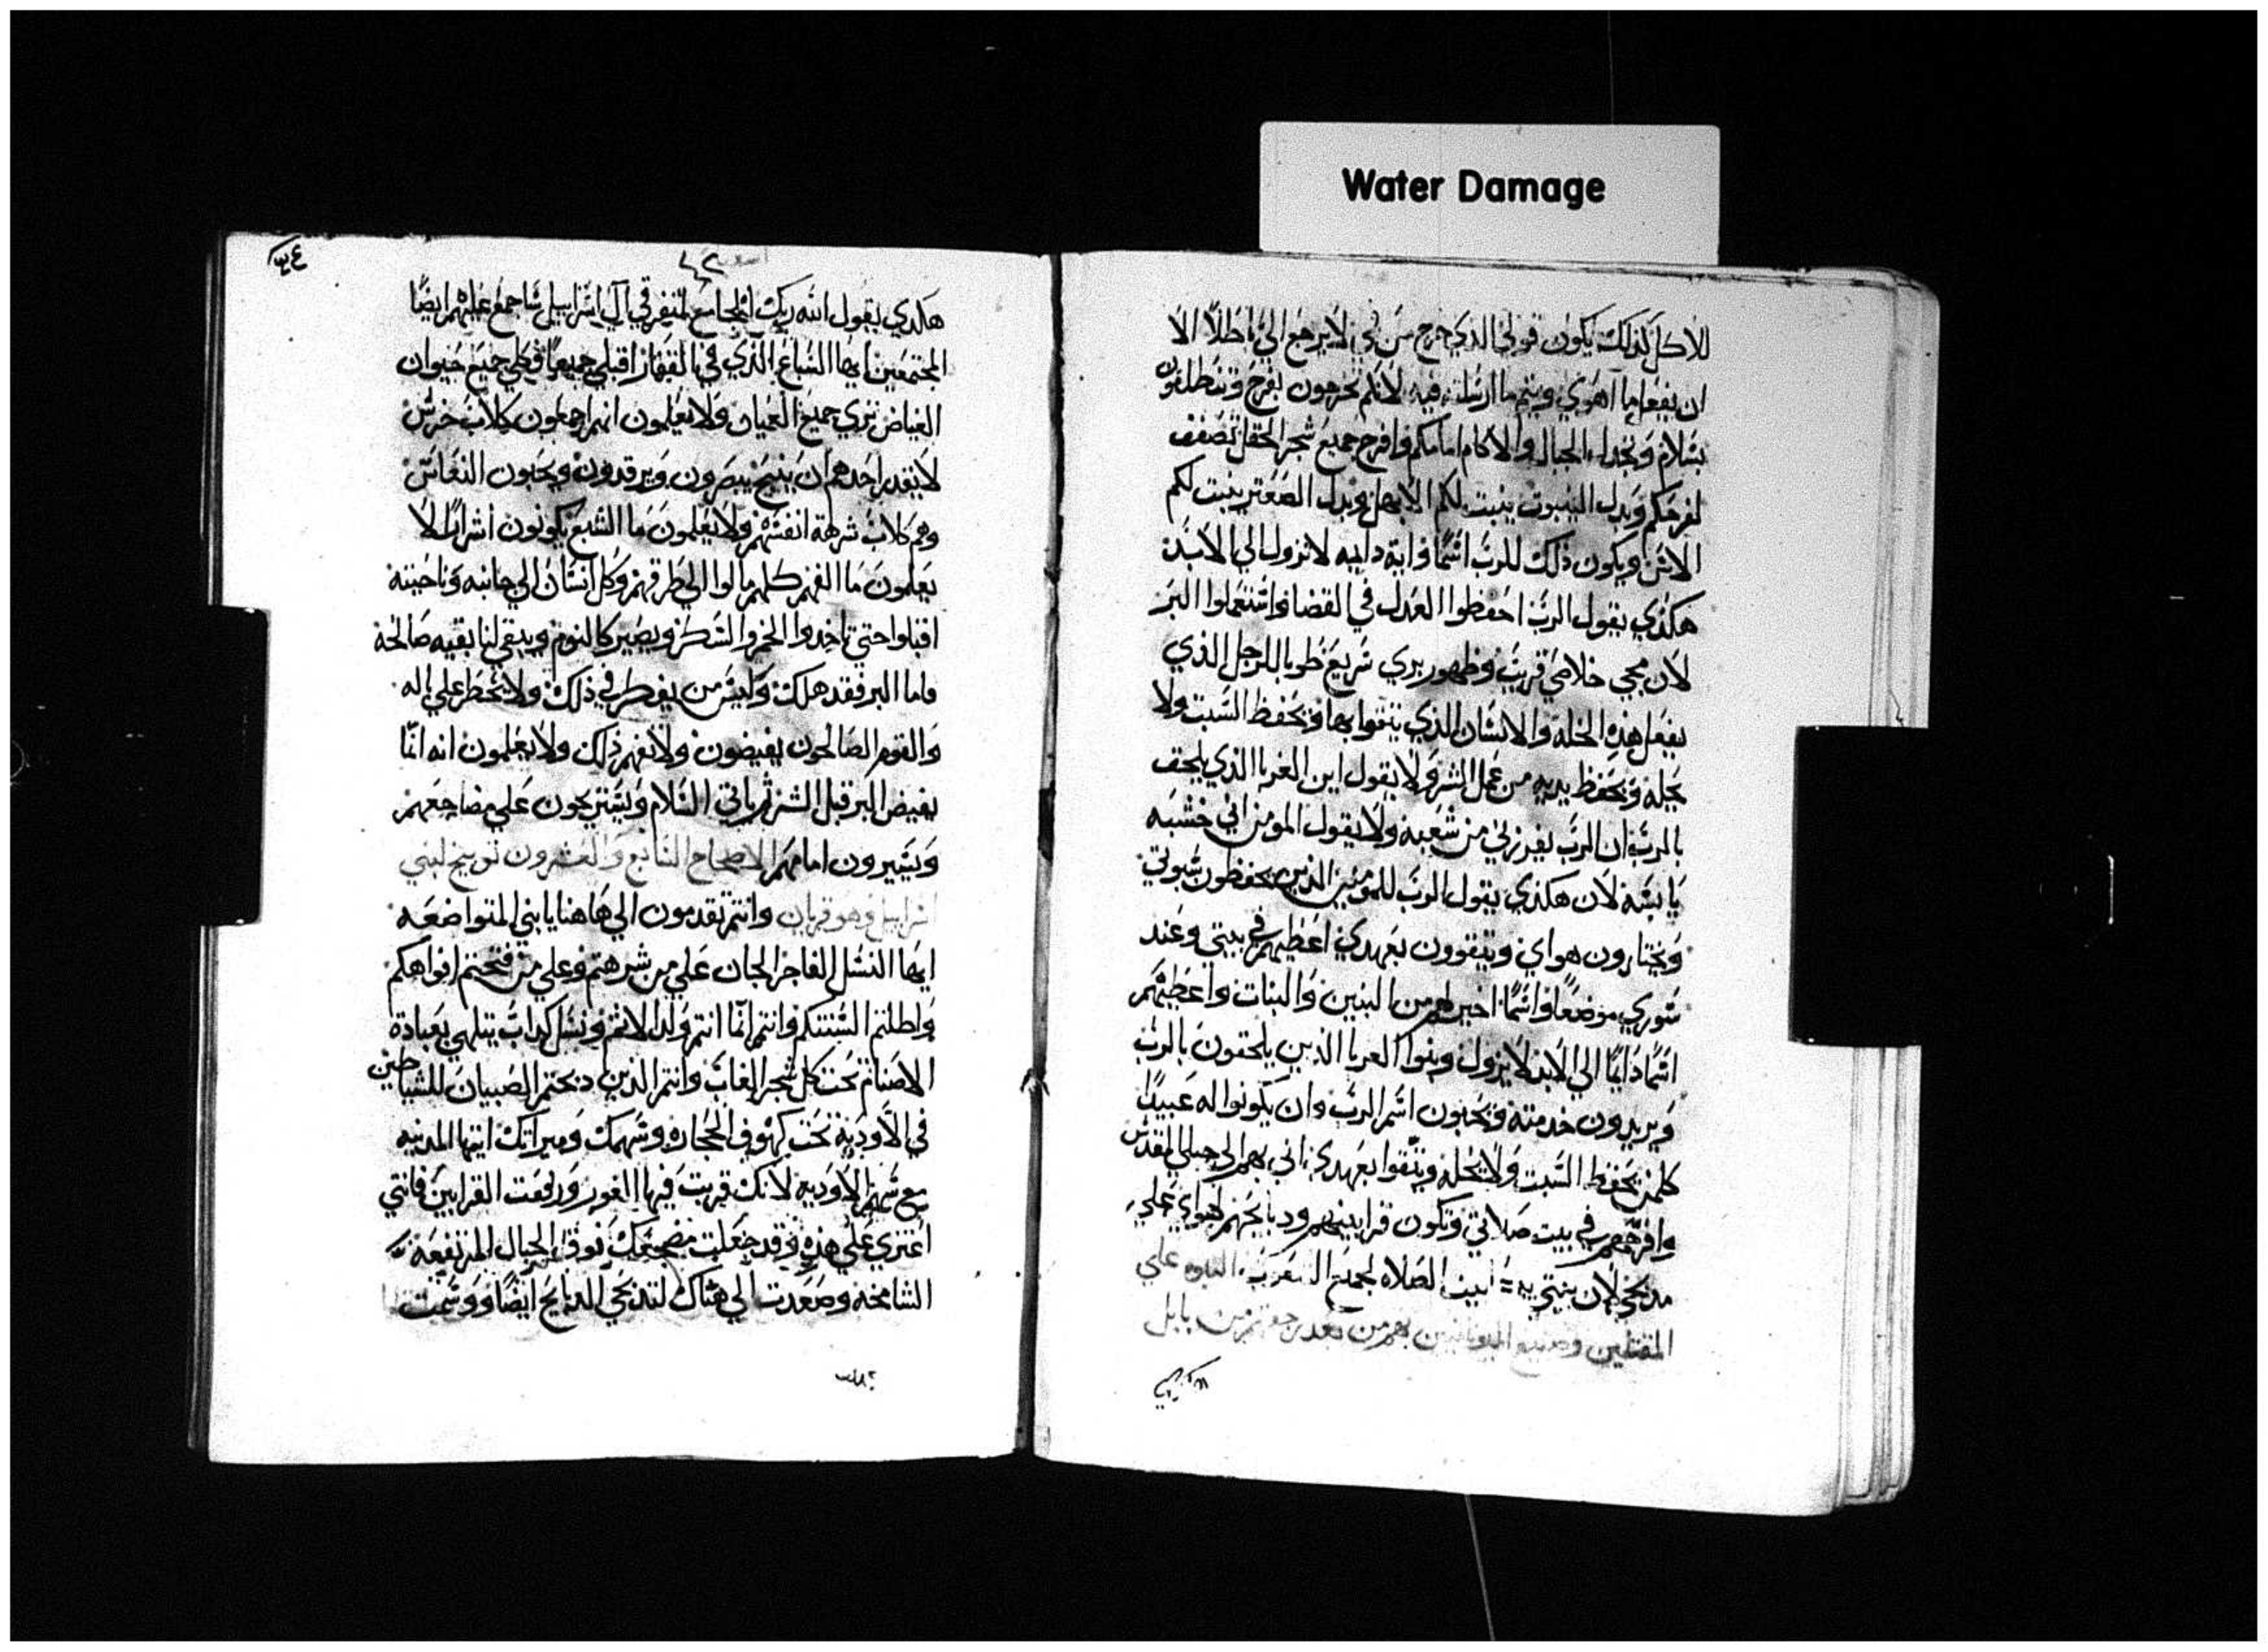 Water Damage
للاكل كذلك يكون قولي الذي خرج من في لا يرجع الي باطلا الا
ان يفعل ما اهوي ويتم ما ارسلته فيه لانكم تخرجون بفرح وتنطلقون
بسلام وتجدا الجبال والاكام امامكم وافرح جميع شجر الحقل تصفف
لفرحكم وبدل الينبوت ينبت لكم الابهل وبدل الصعتر ينبت لكم
الاس ويكون ذلك للرب اسما واية داييه لا تزول الي الابد
هكذي يقول الرب احفظوا العدل في القضا واستعملوا البر
لان مجي خلاصي قريب وظهور بري سريع طوبا للرجل الذي
يفعل هذه الخلة والانسان الذي يتقوا بها ويحفظ السبت ولا
يحله ويحفظ يديه من عمل الشر ولا يقول ابن الغربا الذي يلحق
بالرب ان الرب يفرزني من شعبه ولا يقول المومن اني خشبه
يابسة لان هكذي يقول الرب للمومنين الذين يحفظون سبوتي
ويختارون هواي ويتقوون بعهدي اعطيهم في بيتي وعند
سوري موضعا واسما اخير لهم من البنين والبنات واعطيهم
اسما دايما الي الابد لا يزول وبنوا الغربا الذين يلحقون بالرب
ويريدون خدمته ويحبون اسم الرب وان يكونوا له عبيدا
كلمن يحفظ السبت ولا يحله ويتقوا بعهدي اني بهم الي جبلي المقدس
وافرحهم في بيت صلاتي وتكون قرابينهم ودبايحهم لهواي علي
مدبحي لان بيتي بيت الصلاه لجميع النبوه علي
المقتلين بهم من بعد رجعتهم من بابل
هكذي يقول الله ربك الجامع لمتفرقي ال اسراييل ساجمع عليهم ايضا
المجتمعين ايها السباع الذي في القفار اقبلي جميعا وكلي جميع حيوان
الغياض تري جميع العميان ولا يعلمون انهم اجمعون كلاب خرس
لا يقدر احدهم ان ينبح يبصرون ويرقدون ويحبون النعاس
وهم كلاب شرهة انفسهم ولا يعلمون ما الشبع يكونون اشرارا لا
يعلمون ما الفهم كلهم مالوا الي طرقهم وكل انسان الي جانبه وناحيته
اقبلوا حتي تاخدوا الخمر والسكر ويصير كاليوم ويبقي لنا بقيه صالحة
فاما البر فقد هلك وليس من يفطر في ذلك ولا يخطر علي باله
والقوم الصالحون يقبضون ولا يفهم ذلك ولا يعلمون انه انما
يقبض البر قبل الشر ثم ياتي السلام ويستريحون علي مضاجعهم
ويسيرون امامهم الاصحاح السابع والعشرون توبيخ لبني
اسراييل وهو قربان وانتم تقدمون الي هاهنا يا بني المتواضعه
ايها النسل الفاجر الجان علي من شرهتم وعلي من فتحتم افواهكم
واطلتم السنتكم وانتم انما انتم ولد الاثم ونسل كداب يتلهي بعبادة
الاصنام تحت كل شجر الغاب وانتم الذين دبحتم الصبيان للشياطين
في الاودية تحت كهوف الحجاره وسهمك وميراتك ايتها المدنيه
مع سهم الاوديه لانك قربت فيها البخور ورفعت القرابين فانتي
اعتري علي هذه وقد جعلت مضجعك فوق الجبال المرتفعة
الشامخه وصعدت الي هناك لتدبحي الدبايح ايضا ووسمت